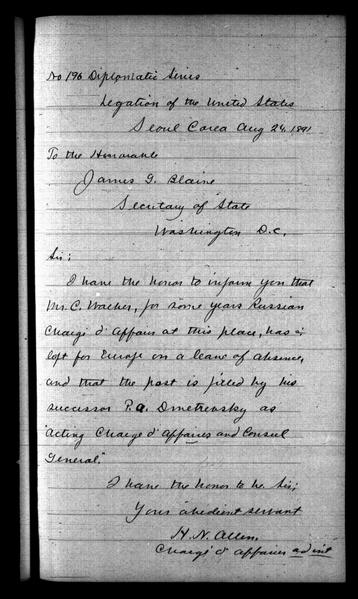 No 196 Diplomatic Series
Legation of the United States
Seoul Corea Aug 24, 1891
To the Honorable
James G. Blaine
Secretary of State
Washington D.C.
Sir:
I have the honor to inform you that
Mr. C. Waeber, for some years Russian
Chargé d' Affairs at this place, has
left for Europe on a leave of absence,
and that the post is filled by his
successor P.a. Dmitrevsky as
"Acting Chargé d' Affaires and Consul
General."
I have the honor to be Sir;
Your obedient servant
H. N. Allen.
Chargé d' Affaires ad int